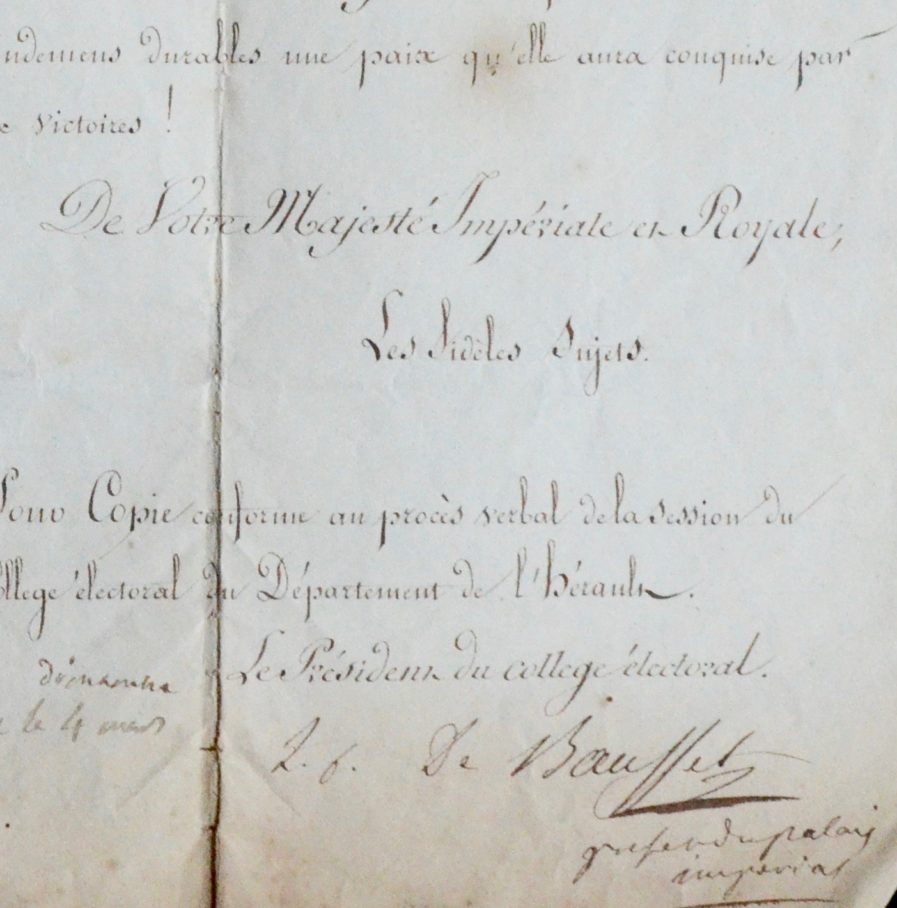 ndemens durables une paix qu'elle aura conquise par
e victoires !
De Votre Majesté Impériale et Royale,
Les fidèles Sujets.
Pour Copie conforme au procès verbal de la session du
ollege électoral du Département de l'hérault.
Le Président du college électoral.
le 4 mars
L. f. De Bausset
prefet du palais
imperial